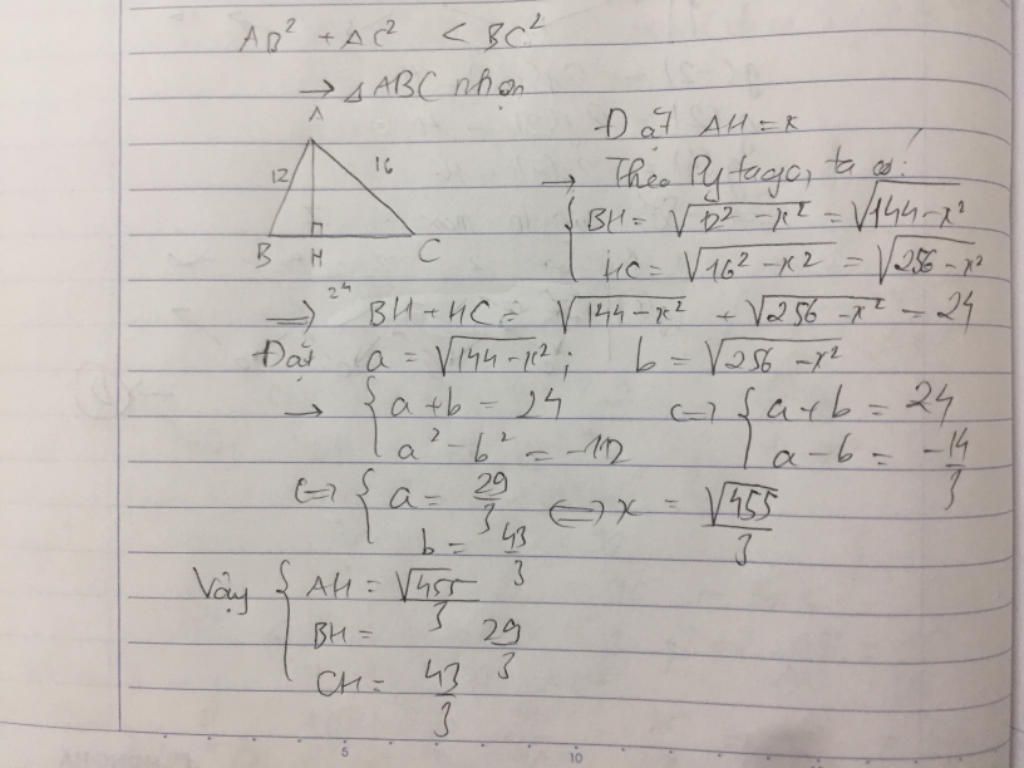 AB² + AC² < BC²
→ △ABC nhọn
A
12
16
B
H
C
Đặt AH = x
→ Theo Pytago, ta có:
{ BH = √(12² - x²) = √(144 - x²)
{ HC = √(16² - x²) = √(256 - x²)
24
⇒ BH + HC = √(144 - x²) + √(256 - x²) = 24
Đặt a = √(144 - x²); b = √(256 - x²)
→ { a + b = 24 ⇔ { a + b = 24
{ a² - b² = -112 { a - b = -14/3
⇔ { a = 29/3 ⇔ x = √455/3
b = 43/3
Vậy { AH = √455/3
BH = 29/3
CH = 43/3
5
10